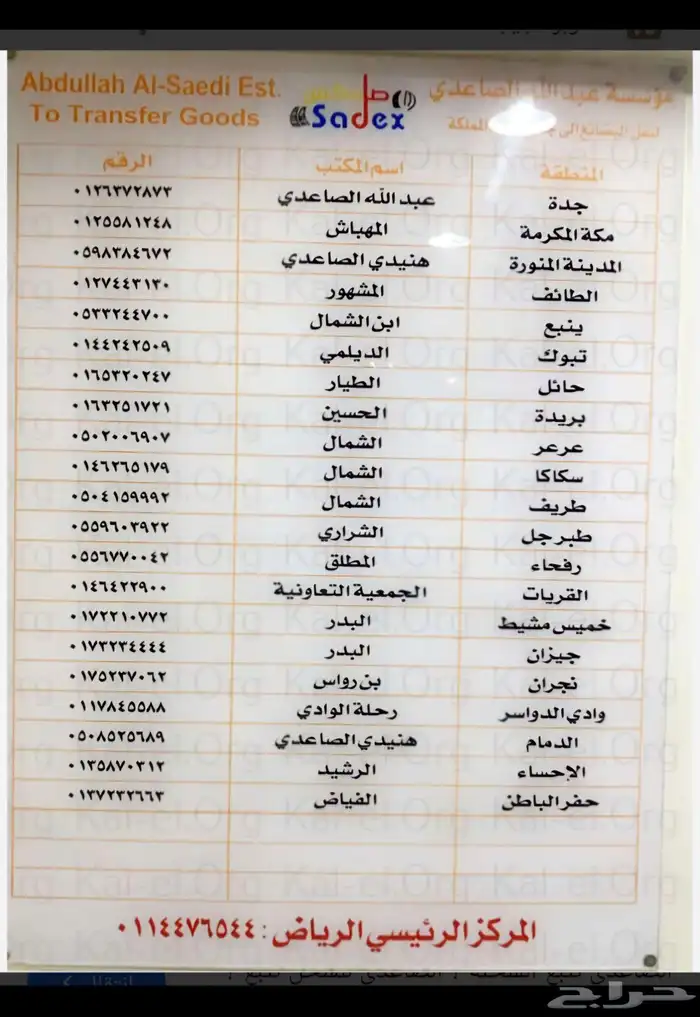 Abdullah Al-Saedi Est.
To Transfer Goods
صادكس
Sadex
مؤسسة عبدالله الصاعدي
لنقل البضائع إلى المملكة
المنطقة اسم المكتب الرقم
جدة عبدالله الصاعدي ٠١٢٦٣٧٢٨٧٣
مكة المكرمة المهباش ٠١٢٥٥٨١٢٤٨
المدينة المنورة هنيدي الصاعدي ٠٥٩٨٣٨٤٦٧٢
الطائف المشهور ٠١٢٧٤٤٣١٣٠
ينبع ابن الشمال ٠٥٣٣٢٤٤٧٠٠
تبوك الديلمي ٠١٤٤٢٤٢٥٠٩
حائل الطيار ٠١٦٥٣٢٠٢٤٧
بريدة الحسين ٠١٦٣٢٥١٧٢١
عرعر الشمال ٠٥٠٢٠٠٦٩٠٧
سكاكا الشمال ٠١٤٦٢٦٥١٧٩
طريف الشمال ٠٥٠٤١٥٩٩٩٢
طبرجل الشراري ٠٥٥٩٦٠٣٩٢٢
رفحاء المطلق ٠٥٥٦٧٧٠٠٤٢
القريات الجمعية التعاونية ٠١٤٦٤٢٢٩٠٠
خميس مشيط البدر ٠١٧٢٢١٠٧٧٢
جيزان البدر ٠١٧٣٢٣٤٤٤٤
نجران بن رواس ٠١٧٥٢٣٧٠٦٢
وادي الدواسر رحلة الوادي ٠١١٧٨٤٥٥٨٨
الدمام هنيدي الصاعدي ٠٥٠٨٥٢٥٦٨٩
الإحساء الرشيد ٠١٣٥٨٧٠٣١٢
حفر الباطن الفياض ٠١٣٧٢٣٢٦٦٣
المركز الرئيسي الرياض : ٠١١٤٤٧٦٥٤٤
حراج